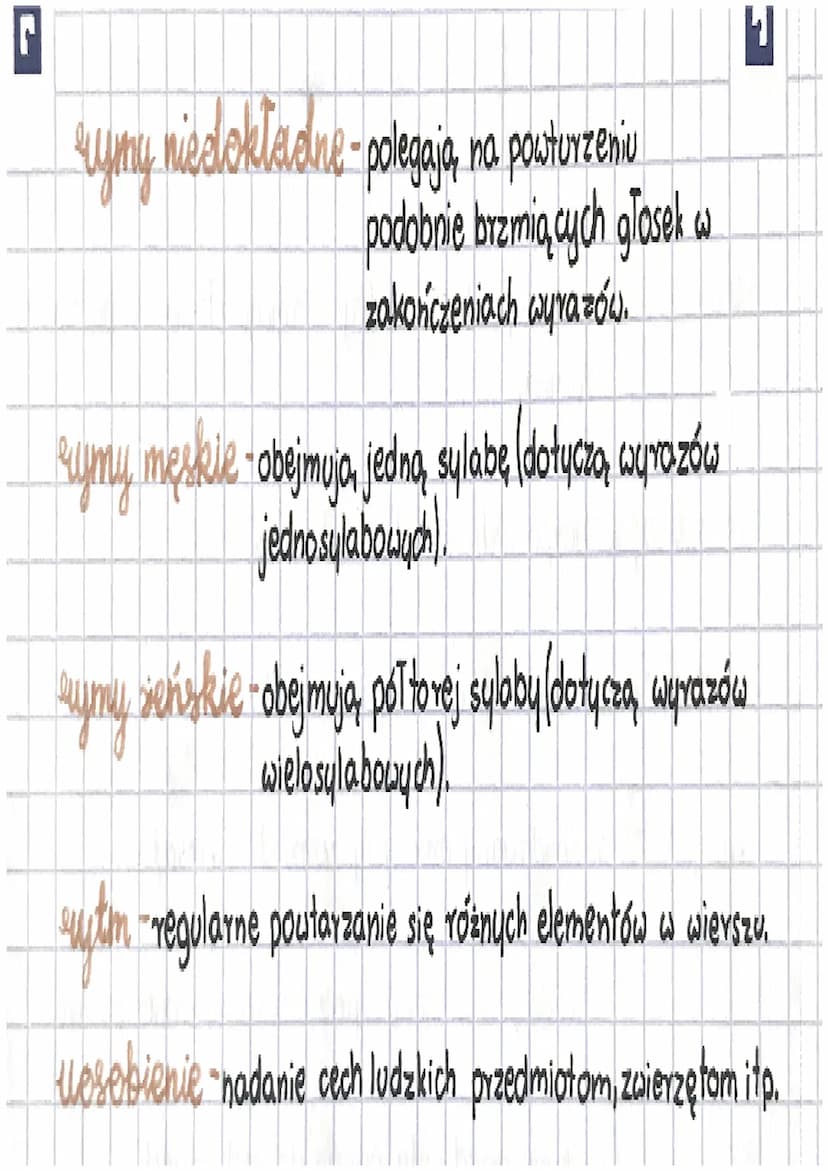 rymy niedokładne - polegają na powturzeniu
podobnie brzmiących głosek w
zakończeniach wyrazów.
rymy męskie - obejmują jedną sylabę (dotyczą wyrazów
jednosylabowych).
rymy żeńskie - obejmują półtorej sylaby (dotyczą wyrazów
wielosylabowych).
rytm - regularne powtarzanie się różnych elementów w wierszu.
uosobienie - nadanie cech ludzkich przedmiotom, zwierzętom itp.